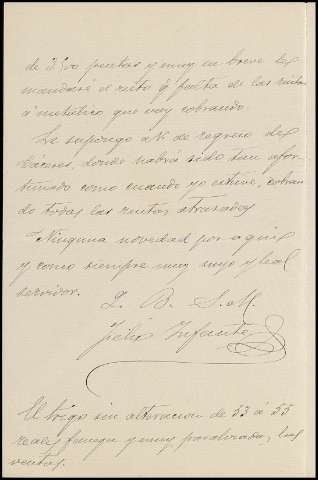 de 350 pesetas y muy en breve le
mandaré el resto ó parte de las rentas
á metálico que voy cobrando.
Le supongo á V. de regreso de
Cáceres, donde habrá sido tan afor-
tunado como cuando yo estuve, cobran
do todas las rentas atrasadas
Ninguna novedad por aquí
y como siempre muy suyo y leal
servidor.
Q. B. S. M.
Félix Infante
El trigo sin alteracion de 53 á 55
reales fanega y muy paralizadas las
ventas.